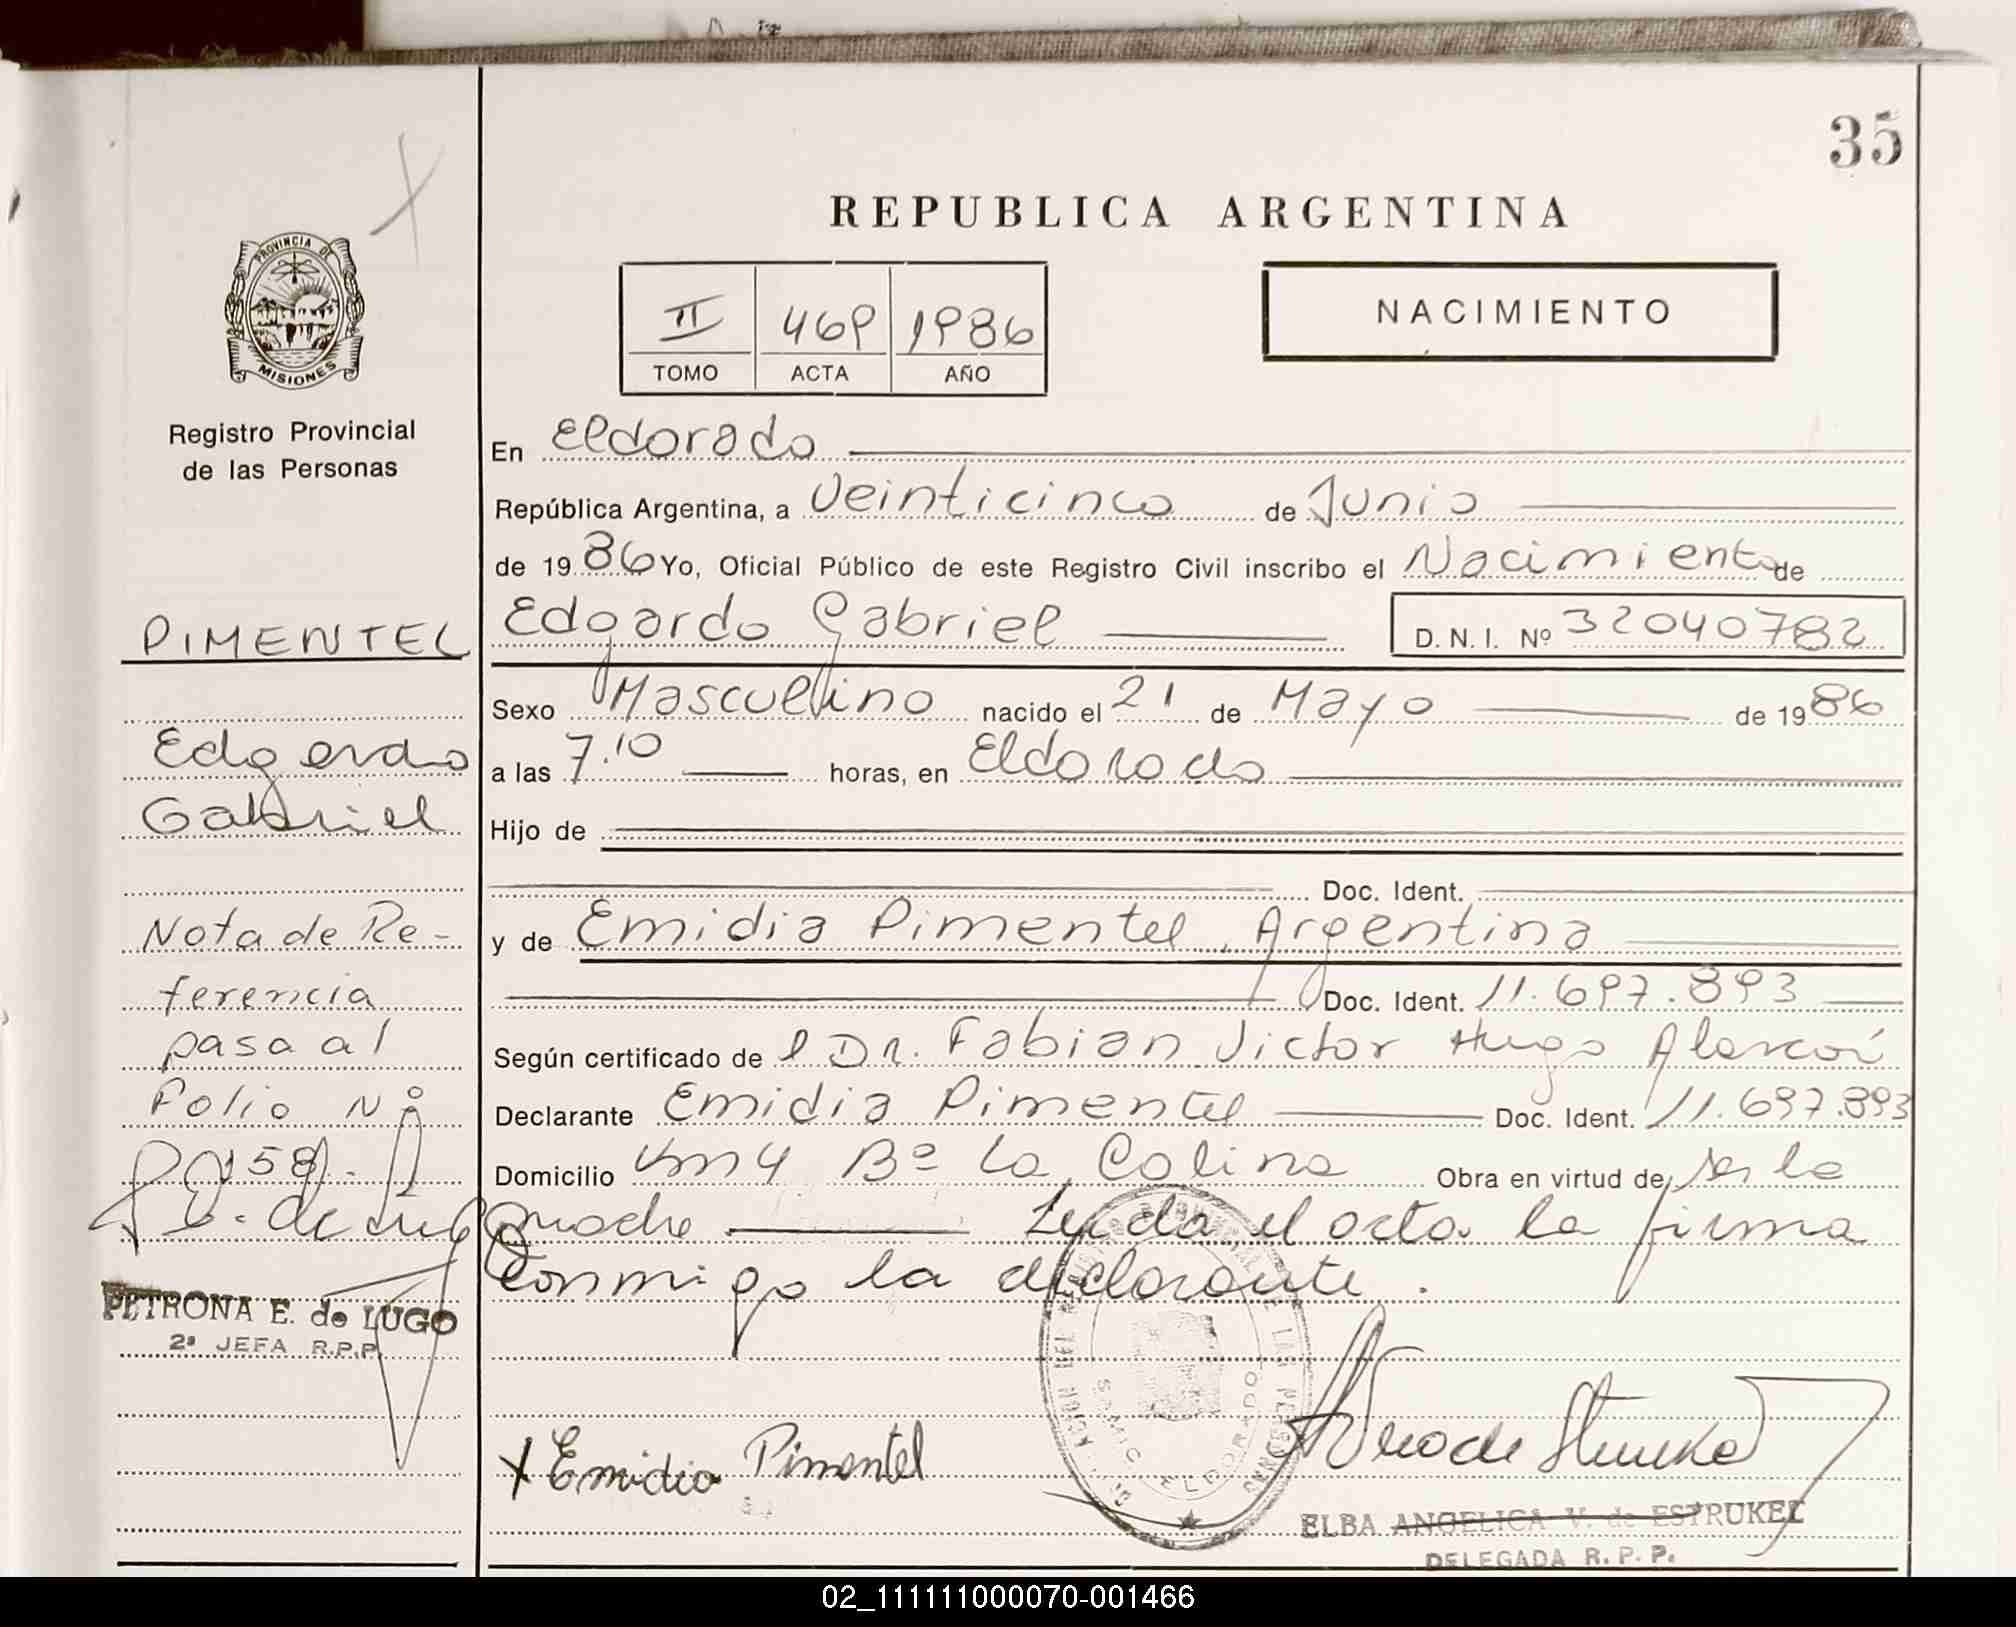 35
REPUBLICA ARGENTINA
II 469 1986
TOMO ACTA AÑO
NACIMIENTO
PROVINCIA DE
MISIONES
Registro Provincial
de las Personas
PIMENTEL
Edgardo
Gabriel
Nota de Re-
ferencia
pasa al
Folio Nº
158.
PETRONA E. de LUGO
2ª JEFA R.P.P.
En Eldorado
República Argentina, a Veinticinco de Junio
de 1986 Yo, Oficial Público de este Registro Civil inscribo el Nacimiento de
Edgardo Gabriel D.N.I. Nº 32040782
Sexo Masculino nacido el 21 de Mayo de 1986
a las 7.10 horas, en Eldorado
Hijo de
Doc. Ident.
y de Emidia Pimentel, Argentina
Doc. Ident. 11.697.893
Según certificado de l Dr. Fabian Victor Hugo Alarcón
Declarante Emidia Pimentel Doc. Ident. 11.697.893
Domicilio Km 4 Bº La Colina Obra en virtud de ser la
madre Leida el acta la firma
conmigo la declarante.
X Emidia Pimentel
ELDORADO
ELBA ANGELICA V. de ESTRUKEL
DELEGADA R.P.P.
02_111111000070-001466